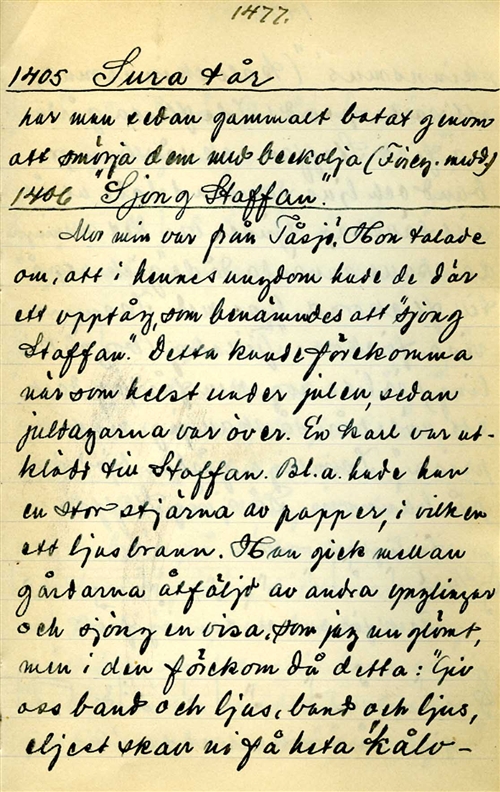 1477.
1405 Sura tår
har man sedan gammalt botat genom
att smörja dem med beckolja (Föreg. medd.)
1406 "Sjong Staffan".
Mor min var från Tåsjö. Hon talade
om, att i hennes ungdom hade de där
ett upptåg, som benämndes att "sjong
Staffan". Detta kunde förekomma
när som helst under julen, sedan
juldagarna var över. En karl var ut-
klädd till Staffan. Bl.a. hade han
en stor stjärna av papper, i vilken
ett ljus brann. Han gick mellan
gårdarna åtföljd av andra ynglingar
och sjöng en visa, som jag nu glömt,
men i den förekom då detta: "Giv
oss band och ljus, band och ljus,
eljest skau ni få heta "kålv-